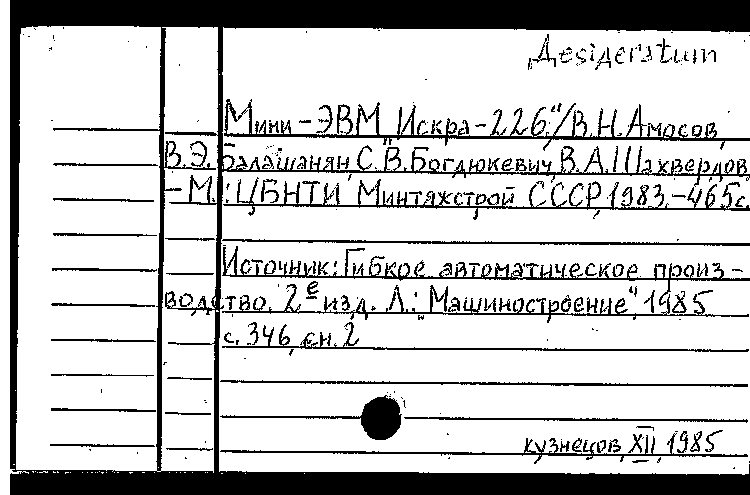 Desideratum
Мини-ЭВМ „Искра-226"/В.Н.Амосов,
В.Э.Балашанян, С.В.Богдюкевич, В.А.Шахвердов
-М.: ЦБНТИ Минтяжстрой СССР, 1983.-465с.
Источник: Гибкое автоматическое произ-
водство. 2е изд. Л.: „Машиностроение", 1985
с. 346, сн. 2
кузнецов, XII, 1985